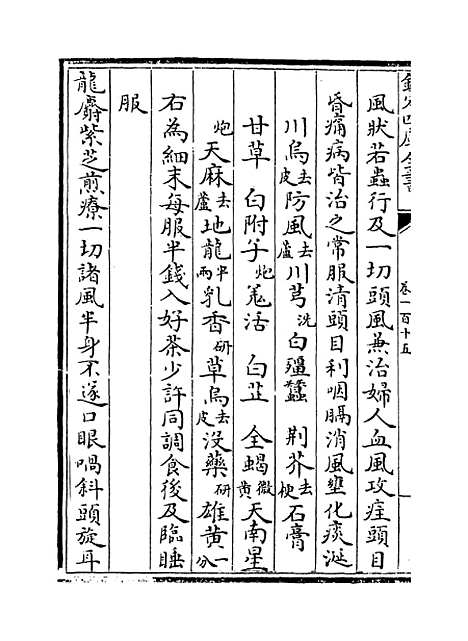 欽定四庫全書
卷一百十五
風狀若蟲行及一切頭風兼治婦人血風攻疰頭目
昏痛病皆治之常服清頭目利咽膈消風壅化痰涎
川烏去皮防風去蘆川芎洗白殭蠶 荆芥去梗石膏
甘草 白附子炮羗活 白芷 全蝎微黄天南星
炮天麻去蘆地龍半兩乳香研草烏去皮没藥研雄黄一分
右為細末每服半錢入好茶少許同調食後及臨睡
服
龍麝紫芝煎療一切諸風半身不遂口眼喎斜頭旋耳